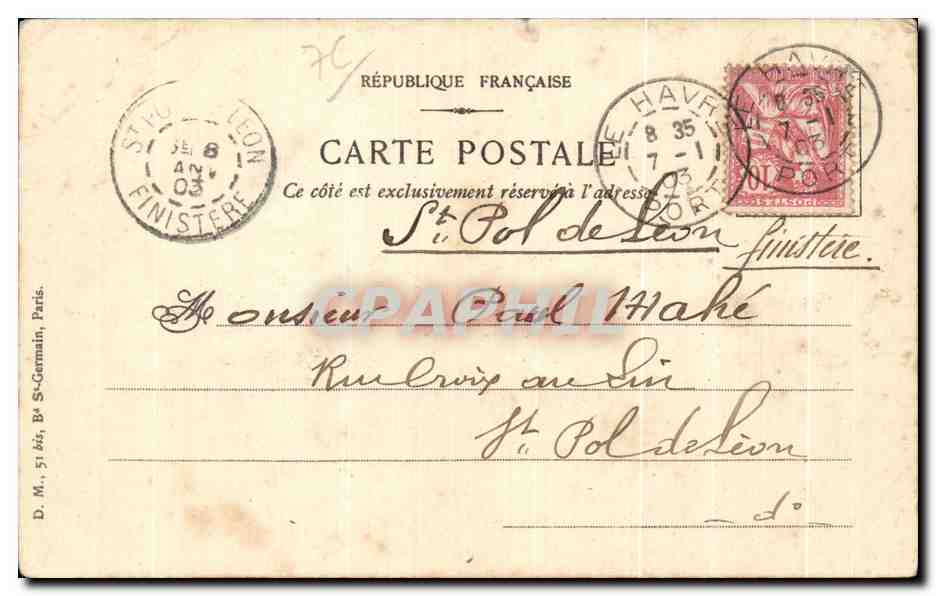 7C
RÉPUBLIQUE FRANÇAISE
CARTE POSTALE
Ce côté est exclusivement réservé à l'adresse
LE HAVRE
8 35
7 - 1
03
PORT
LE HAVRE
8 35
7 - 1
03
PORT
10
POSTES
ST POL LEON
8
03
FINISTERE
St. Pol de Léon
finistère.
Monsieur Paul Mahé
Rue Croix au Lin
St. Pol de Léon
do
CPAPHIL
D. M., 51 bis, Bd St-Germain, Paris.